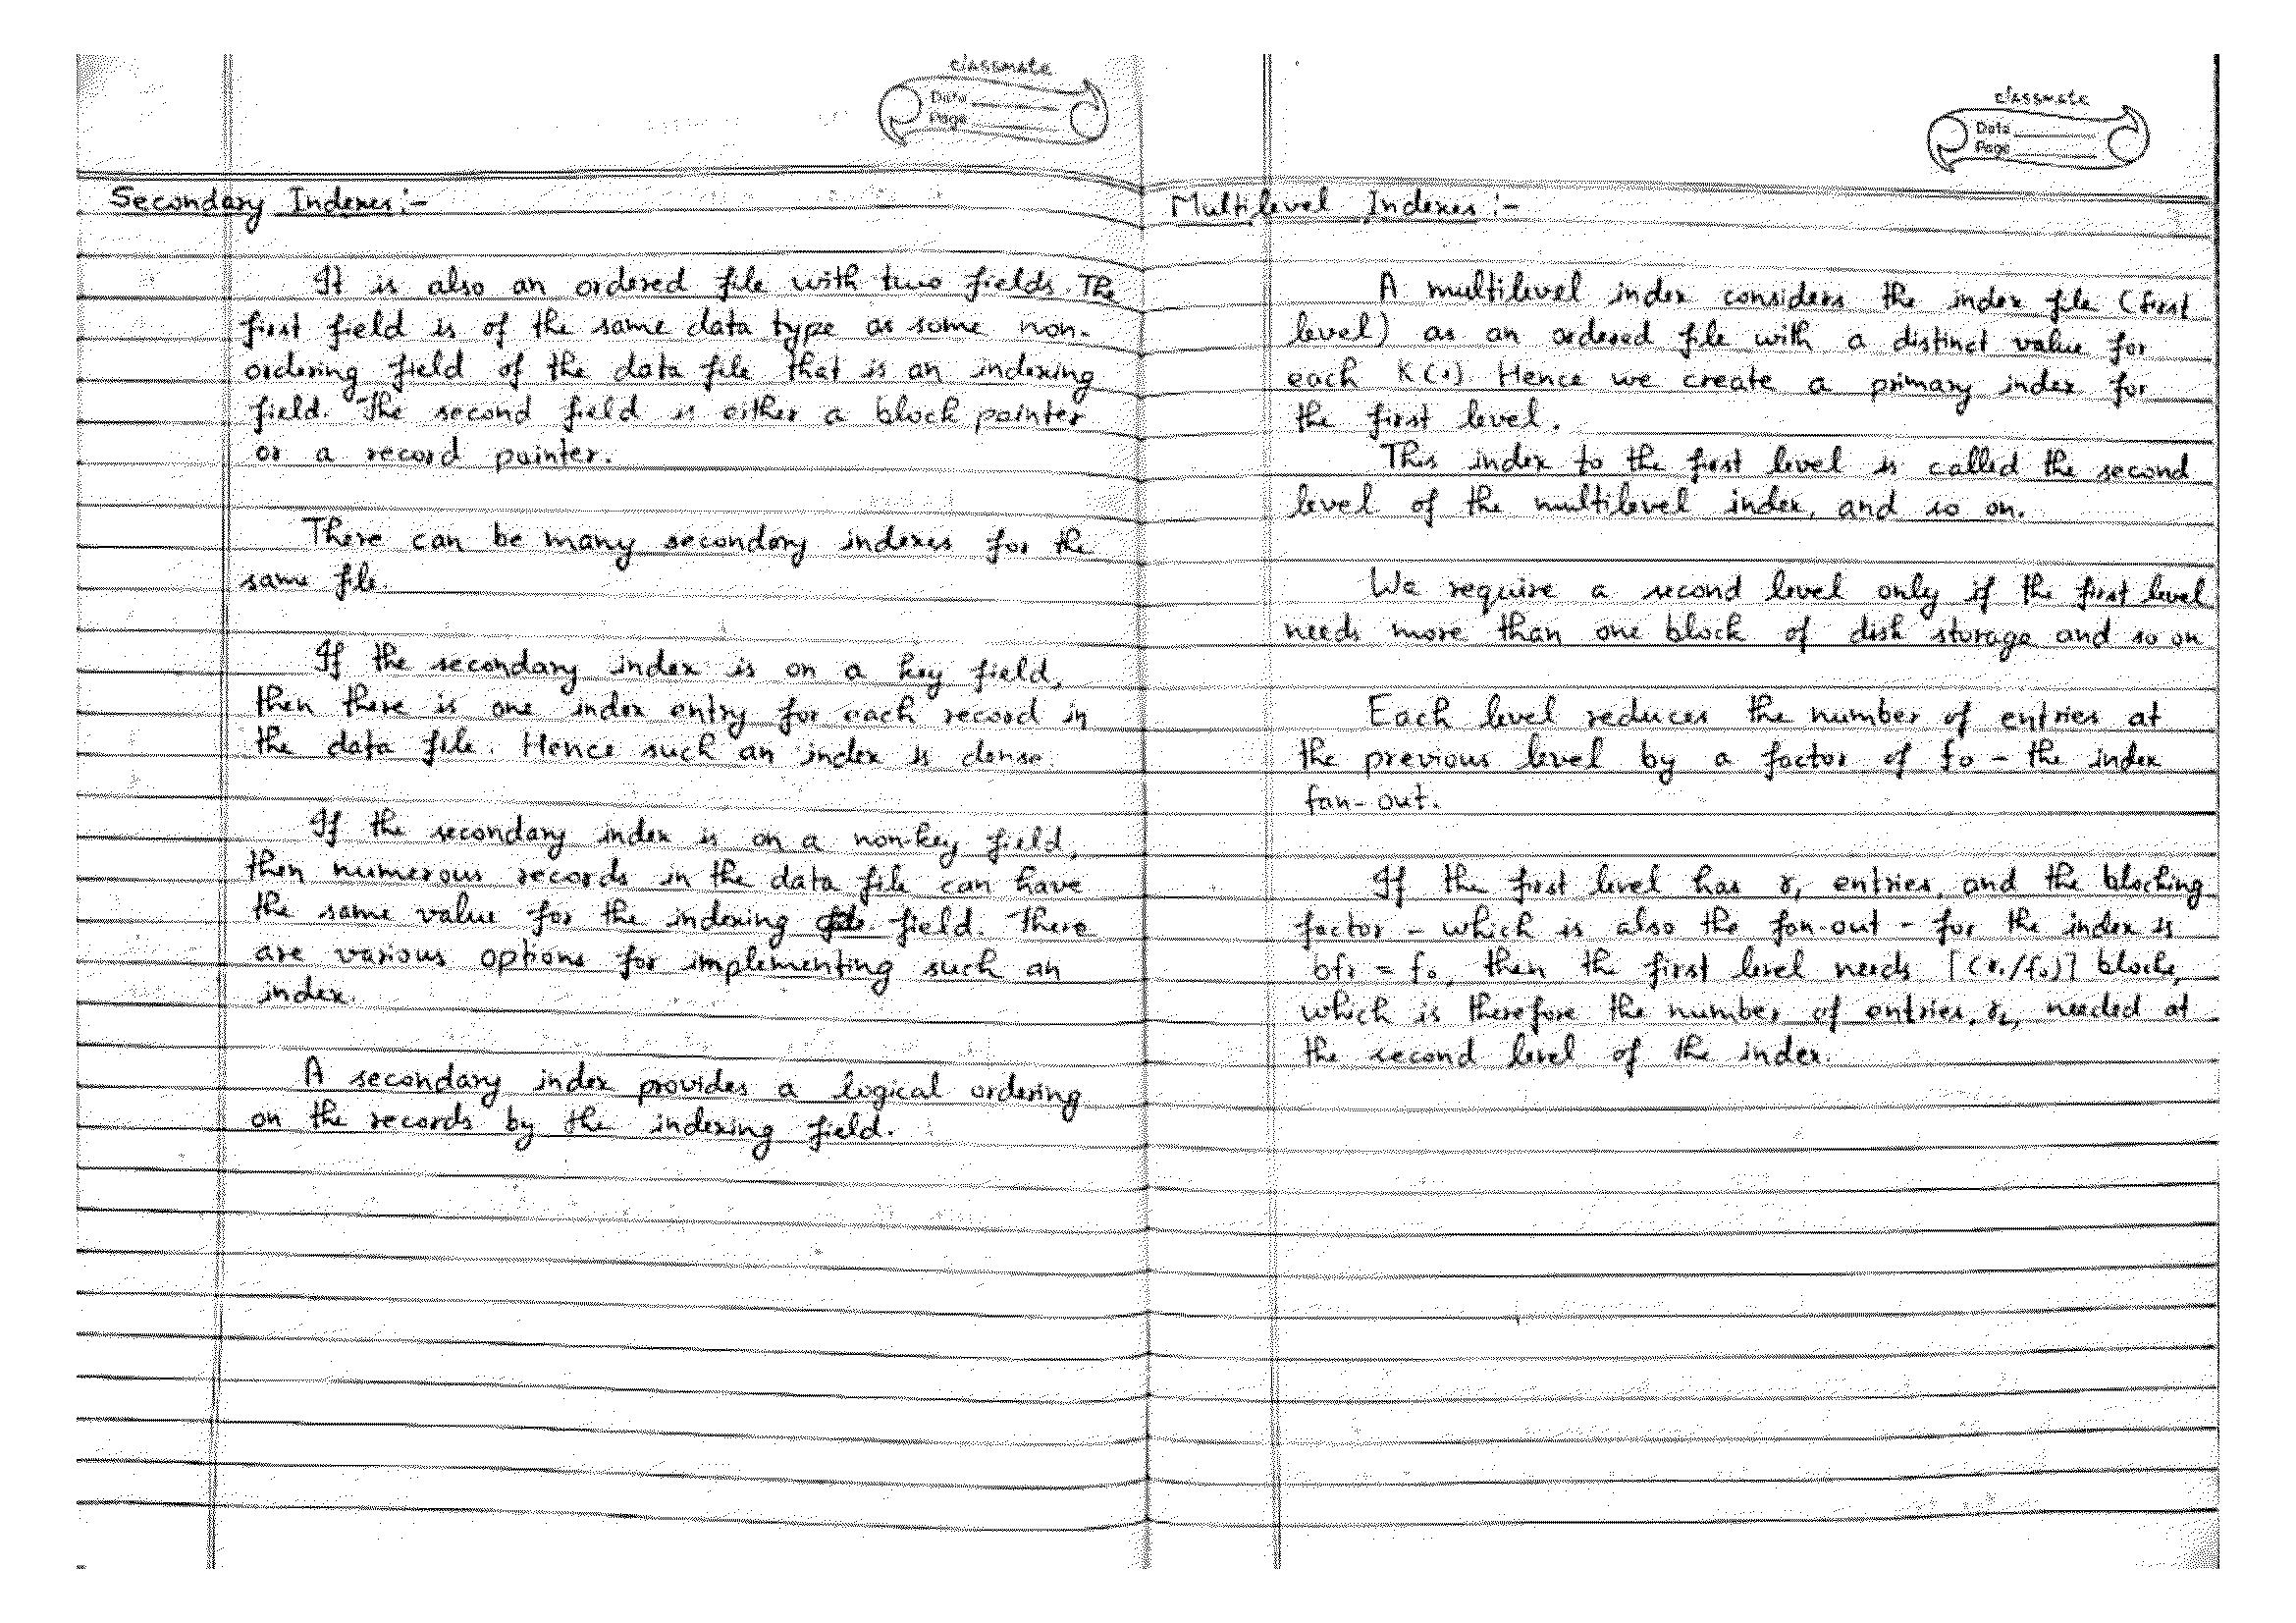 classmate
Date
Page
Secondary Indexes:-
It is also an ordered file with two fields. The
first field is of the same data type as some non-
ordering field of the data file that is an indexing
field. The second field is either a block pointer
or a record pointer.
There can be many secondary indexes for the
same file.
If the secondary index is on a key field,
then there is one index entry for each record in
the data file. Hence such an index is dense.
If the secondary index is on a non-key field,
then numerous records in the data file can have
the same value for the indexing field. There
are various options for implementing such an
index.
A secondary index provides a logical ordering
on the records by the indexing field.
classmate
Date
Page
Multilevel Indexes:-
A multilevel index considers the index file (first
level) as an ordered file with a distinct value for
each K(i). Hence we create a primary index for
the first level.
This index to the first level is called the second
level of the multilevel index, and so on.
We require a second level only if the first level
needs more than one block of disk storage and so on
Each level reduces the number of entries at
the previous level by a factor of fo - the index
fan-out.
If the first level has r₁ entries, and the blocking
factor - which is also the fan-out - for the index is
bfr = fo, then the first level needs [(r₁/fo)] blocks,
which is therefore the number of entries, r₂, needed at
the second level of the index.